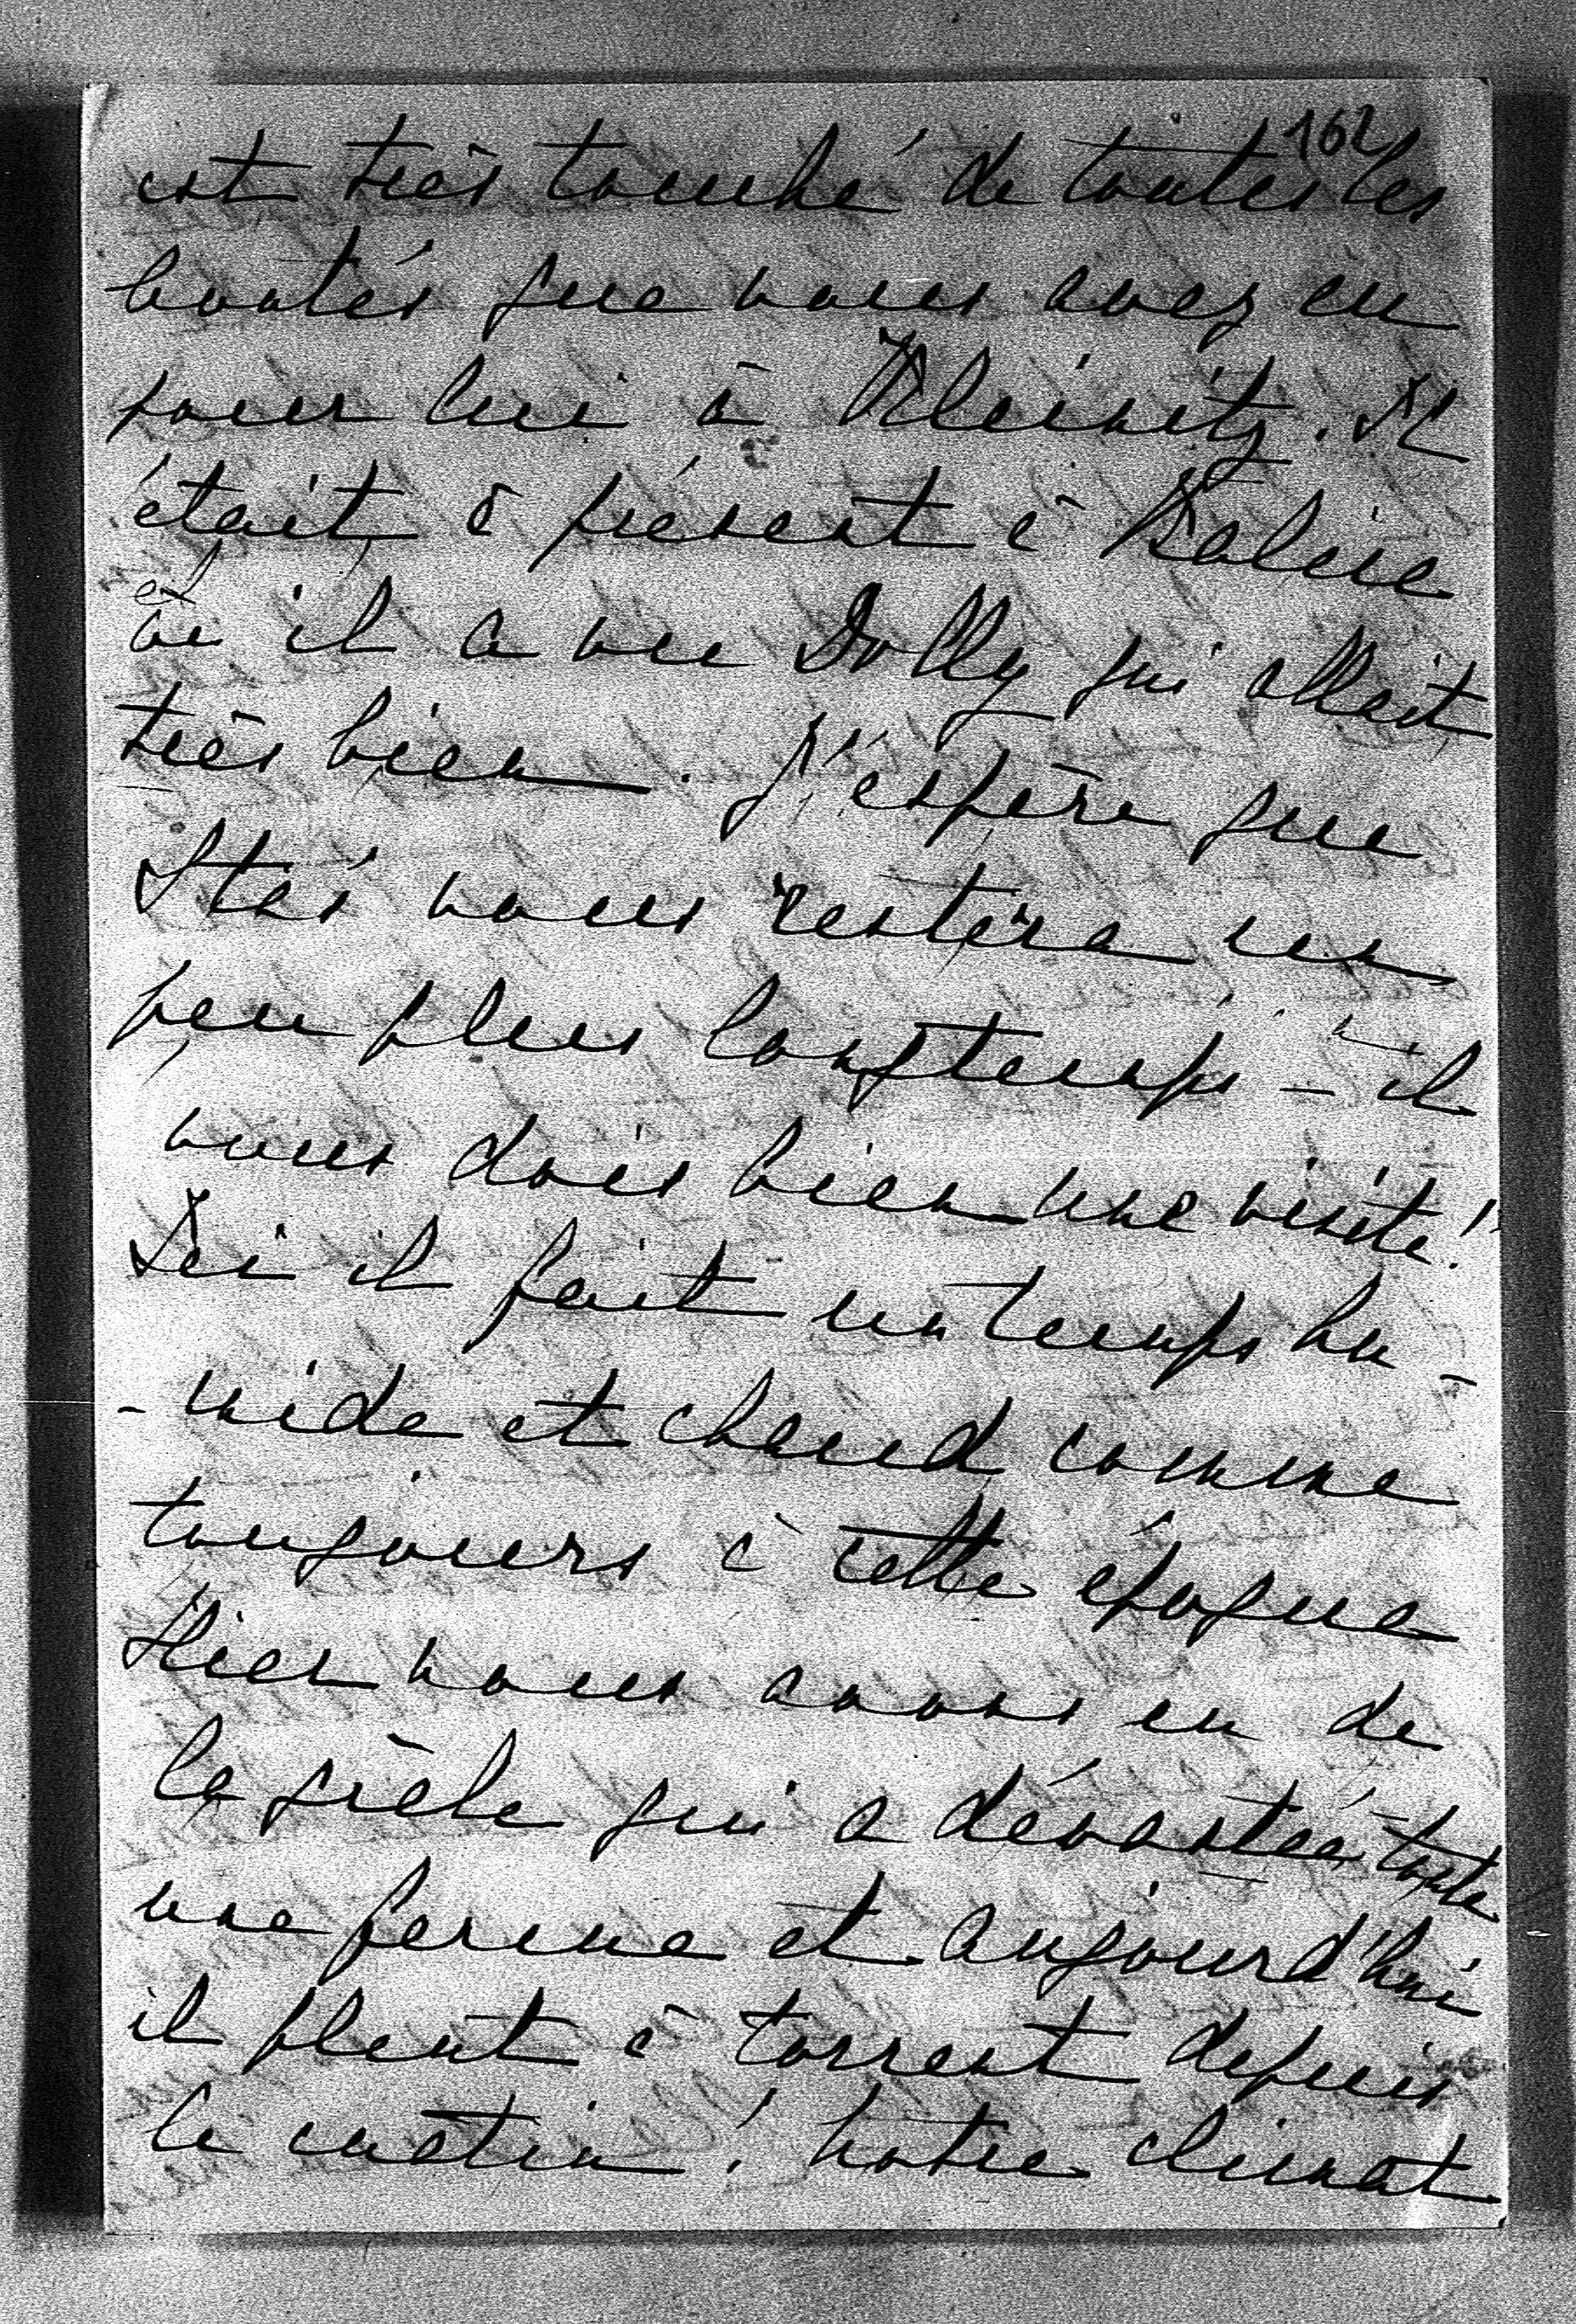 162
est très touché de toutes les
bontés que vous avez eu
pour lui à Kleinitz. Il
était à présent à
et
où il a vu Dolly qui allait
très bien. J'espère que
Stas vous restera un
peu plus longtemps – il
vous dois bien une visite!
Ici il fait un temps hu-
-mide et chaud comme
toujours à cette époque
Hier nous avons eu de
la grèle qui a dévastée toute
une ferme et aujourd'hui
il pleut à torrent depuis
le matin! Notre climat